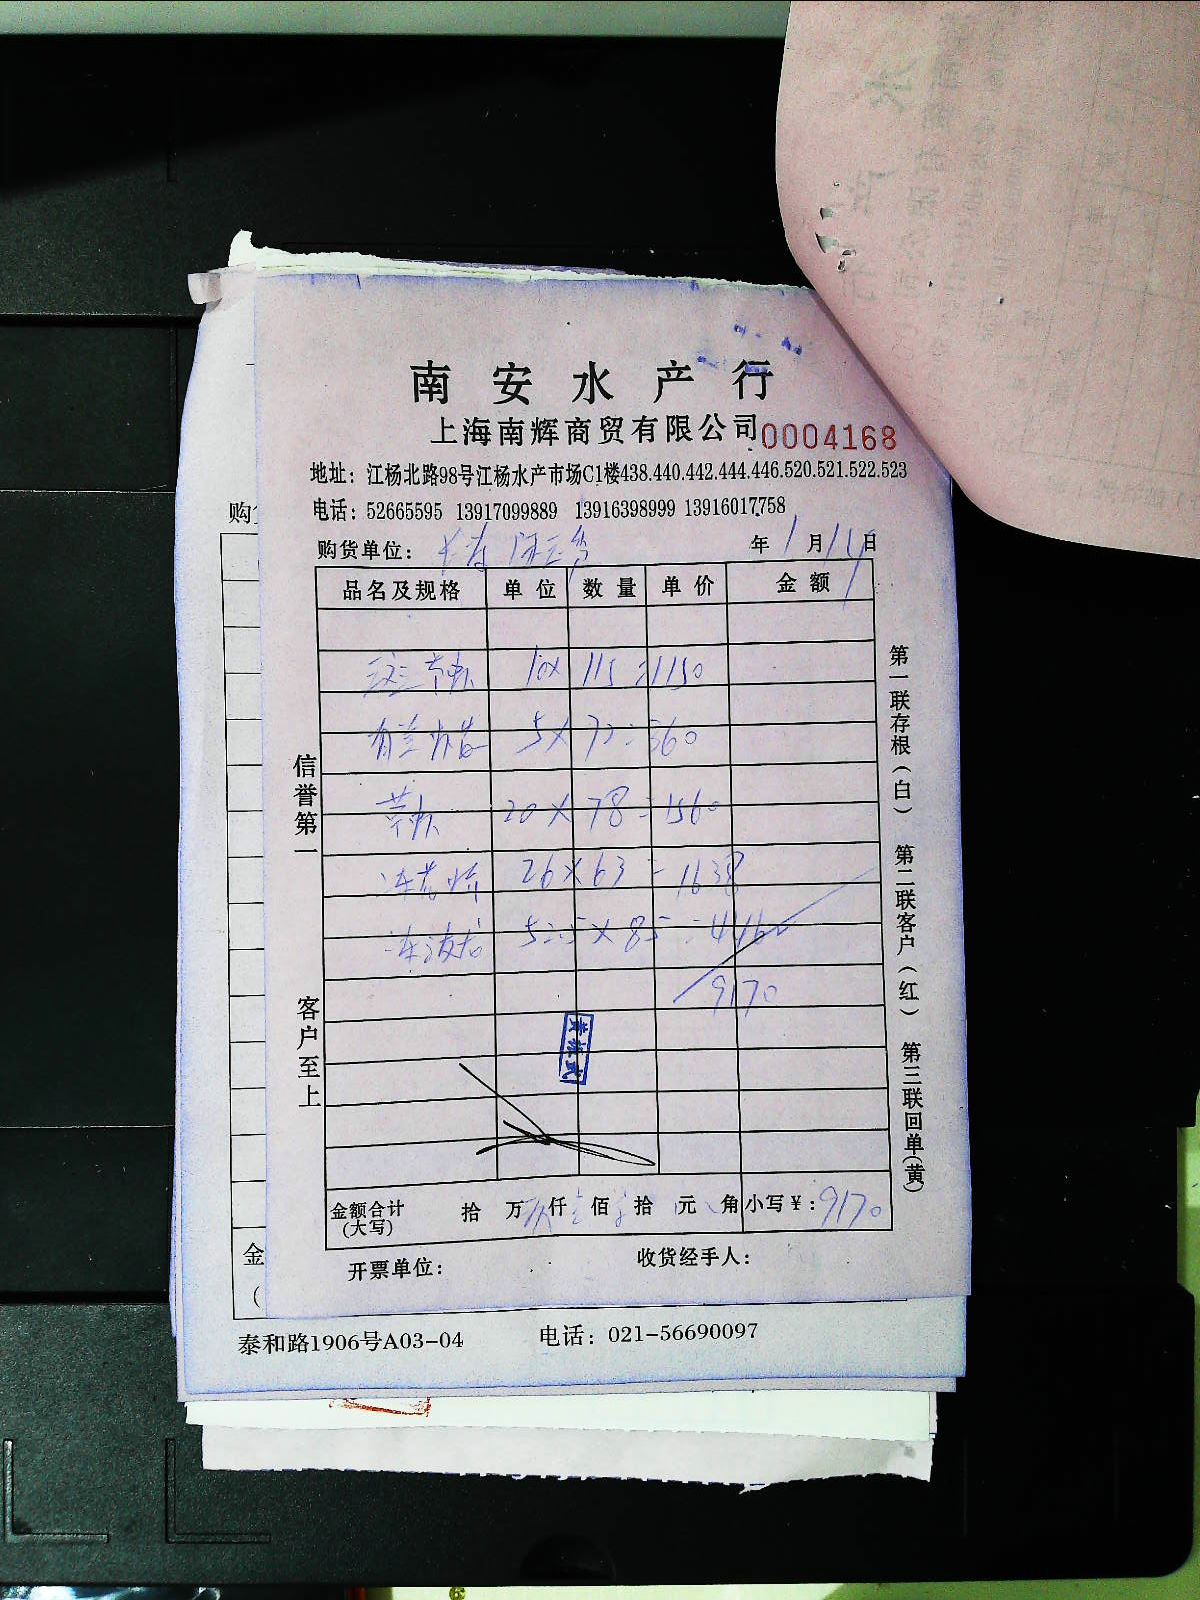 南安水产行
上海南辉商贸有限公司 0004168
地址：江杨北路98号江杨水产市场C1楼438.440.442.444.446.520.521.522.523
电话：52665595 13917099889 13916398999 13916017758
购货单位： 年 1 月 11 日
品名及规格 单位 数量 单价 金额
10 × 115 = 1150
5 × 72 = 360
20 × 78 = 1560
26 × 63 = 1638
× 85 =
9170
金额合计（大写） 拾 万 仟 佰 拾 元 角 小写￥：9170
开票单位： 收货经手人：
信誉第一
客户至上
第一联存根（白） 第二联客户（红） 第三联回单（黄）
购
金
（
泰和路1906号A03-04 电话：021-56690097